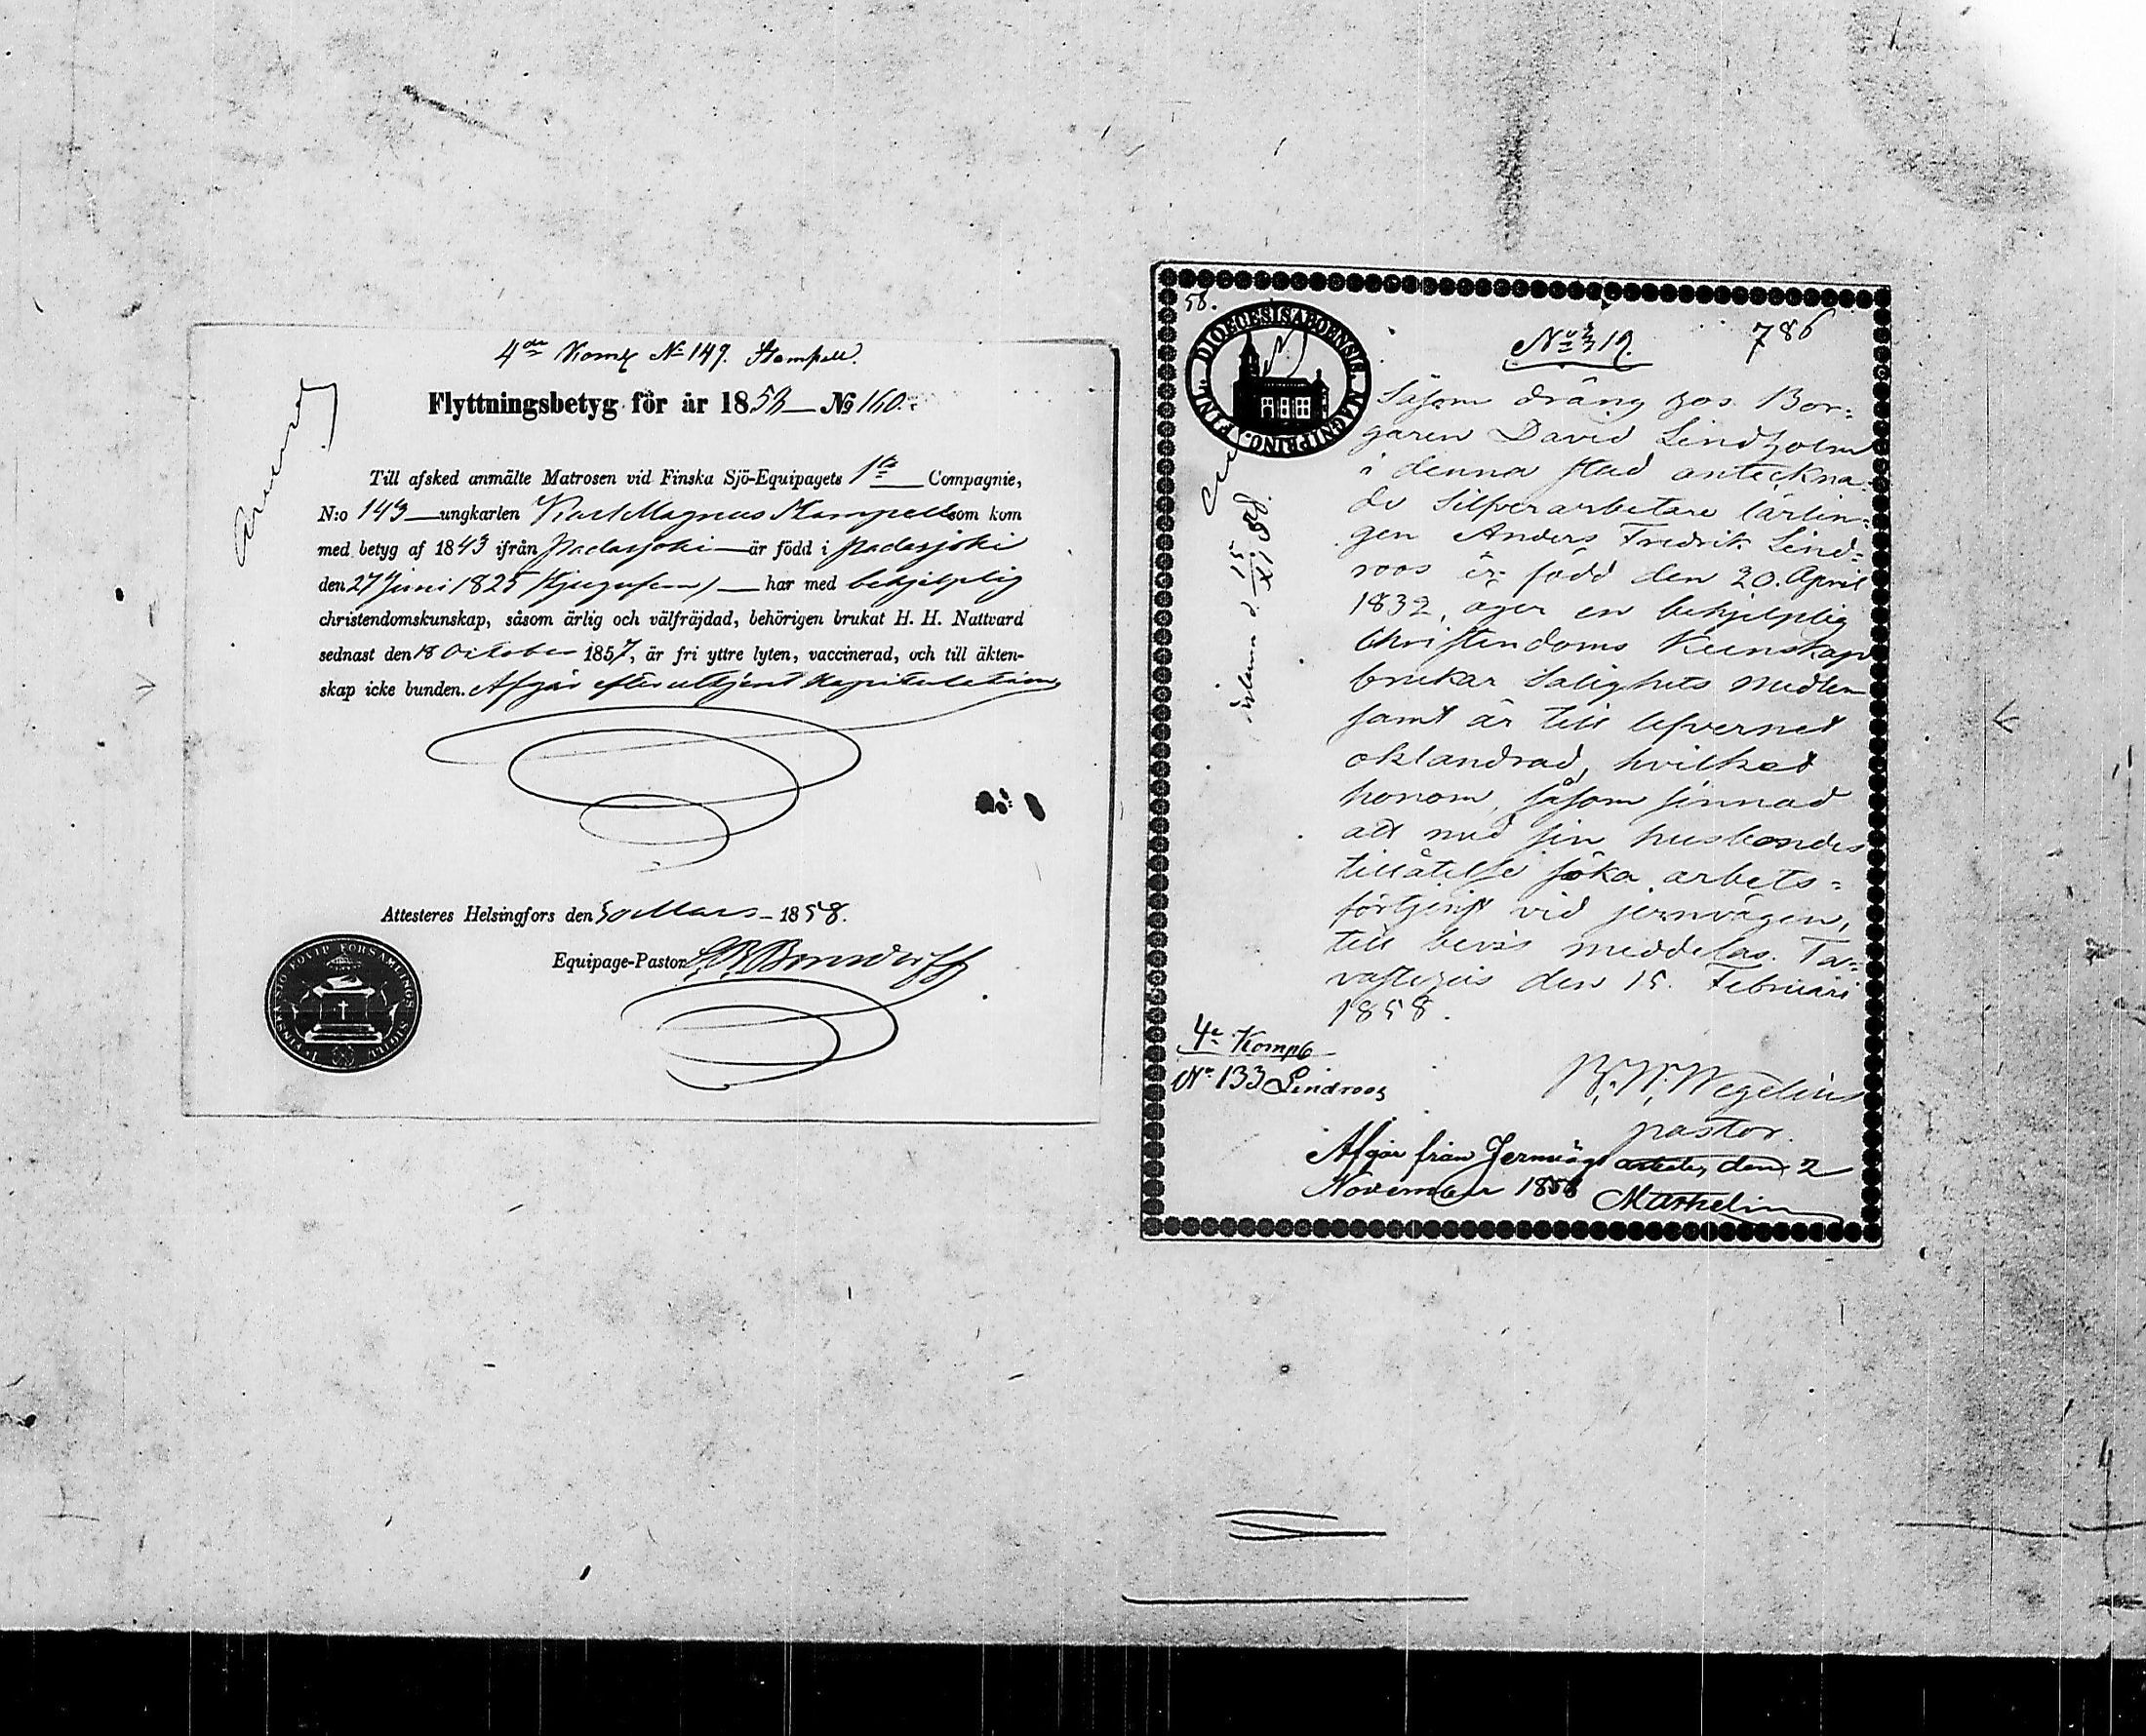 4de Komp No 149. Stampell.
Flyttningsbetyg för år 1858 No 160.
Till afsked anmälte Matrosen vid Finska Sjö-Equipagets 1sta Compagnie,
N:o 143 ungkarlen Karl Magnus Stampell som kom
med betyg af 1843 ifrån Padasjoki är född i Padasjoki
den 27 Juni 1825 (tjugufem) har med behjelplig
christendomskunskap, såsom ärlig och välfräjdad, behörigen brukat H. H. Nattvard
sednast den 18 October 1857, är fri yttre lyten, vaccinerad, och till äkten-
skap icke bunden. Afgår efter uttjent Kapitulation
Attesteres Helsingfors den 30 Mars 1858.
Equipage-Pastor
58.
DIOECESIS ABOENSIS. MAGNI PRINC. FINL.
786
No 319.
Såsom dräng hos Bor-
garen David Lindholm
i denna stad anteckna-
de Silfverarbetare lärlin-
gen Anders Fredrik Lind-
roos är född den 20. April
1832, äger en behjelplig
Christendoms Kunskap
brukar Salighets medlen
samt är till lefvernet
oklandrad, hvilket
honom, såsom sinnad
att med sin husbondes
tillåtelse söka arbets-
förtjenst vid jernvägen,
till bevis meddelas. Ta-
vastehus den 15. Februari
1858.
4e Komp
No 133 Lindroos
Wegelius
pastor.
Afgår från Jernvägs arbete, den 2
November 1858